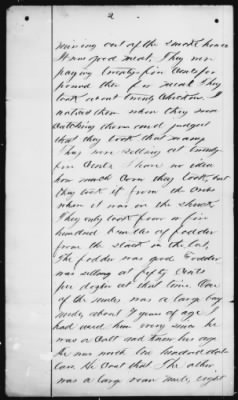 2
missing out of the smoke house
It was good meat. They were
paying twenty five cents per
pound then for meat They
took about twenty chickens. I
noticed them when they were
catching them and judged
that they took that many
They were selling at twenty
five cents. I have no idea
how much corn they took, but
they took it from the
when it was on the shuck.
They only took four or five
hundred bundles of fodder
from the stack in the lot,
The fodder was good Fodder
was selling at fifty cents
per dozen at that time. One
of the mules was a large bay
mule, about 7 years of age I
had used him every since he
was a colt and knew his age
He was worth two hundred dol
lars. He cost that. The other
was a large roan mule, eight